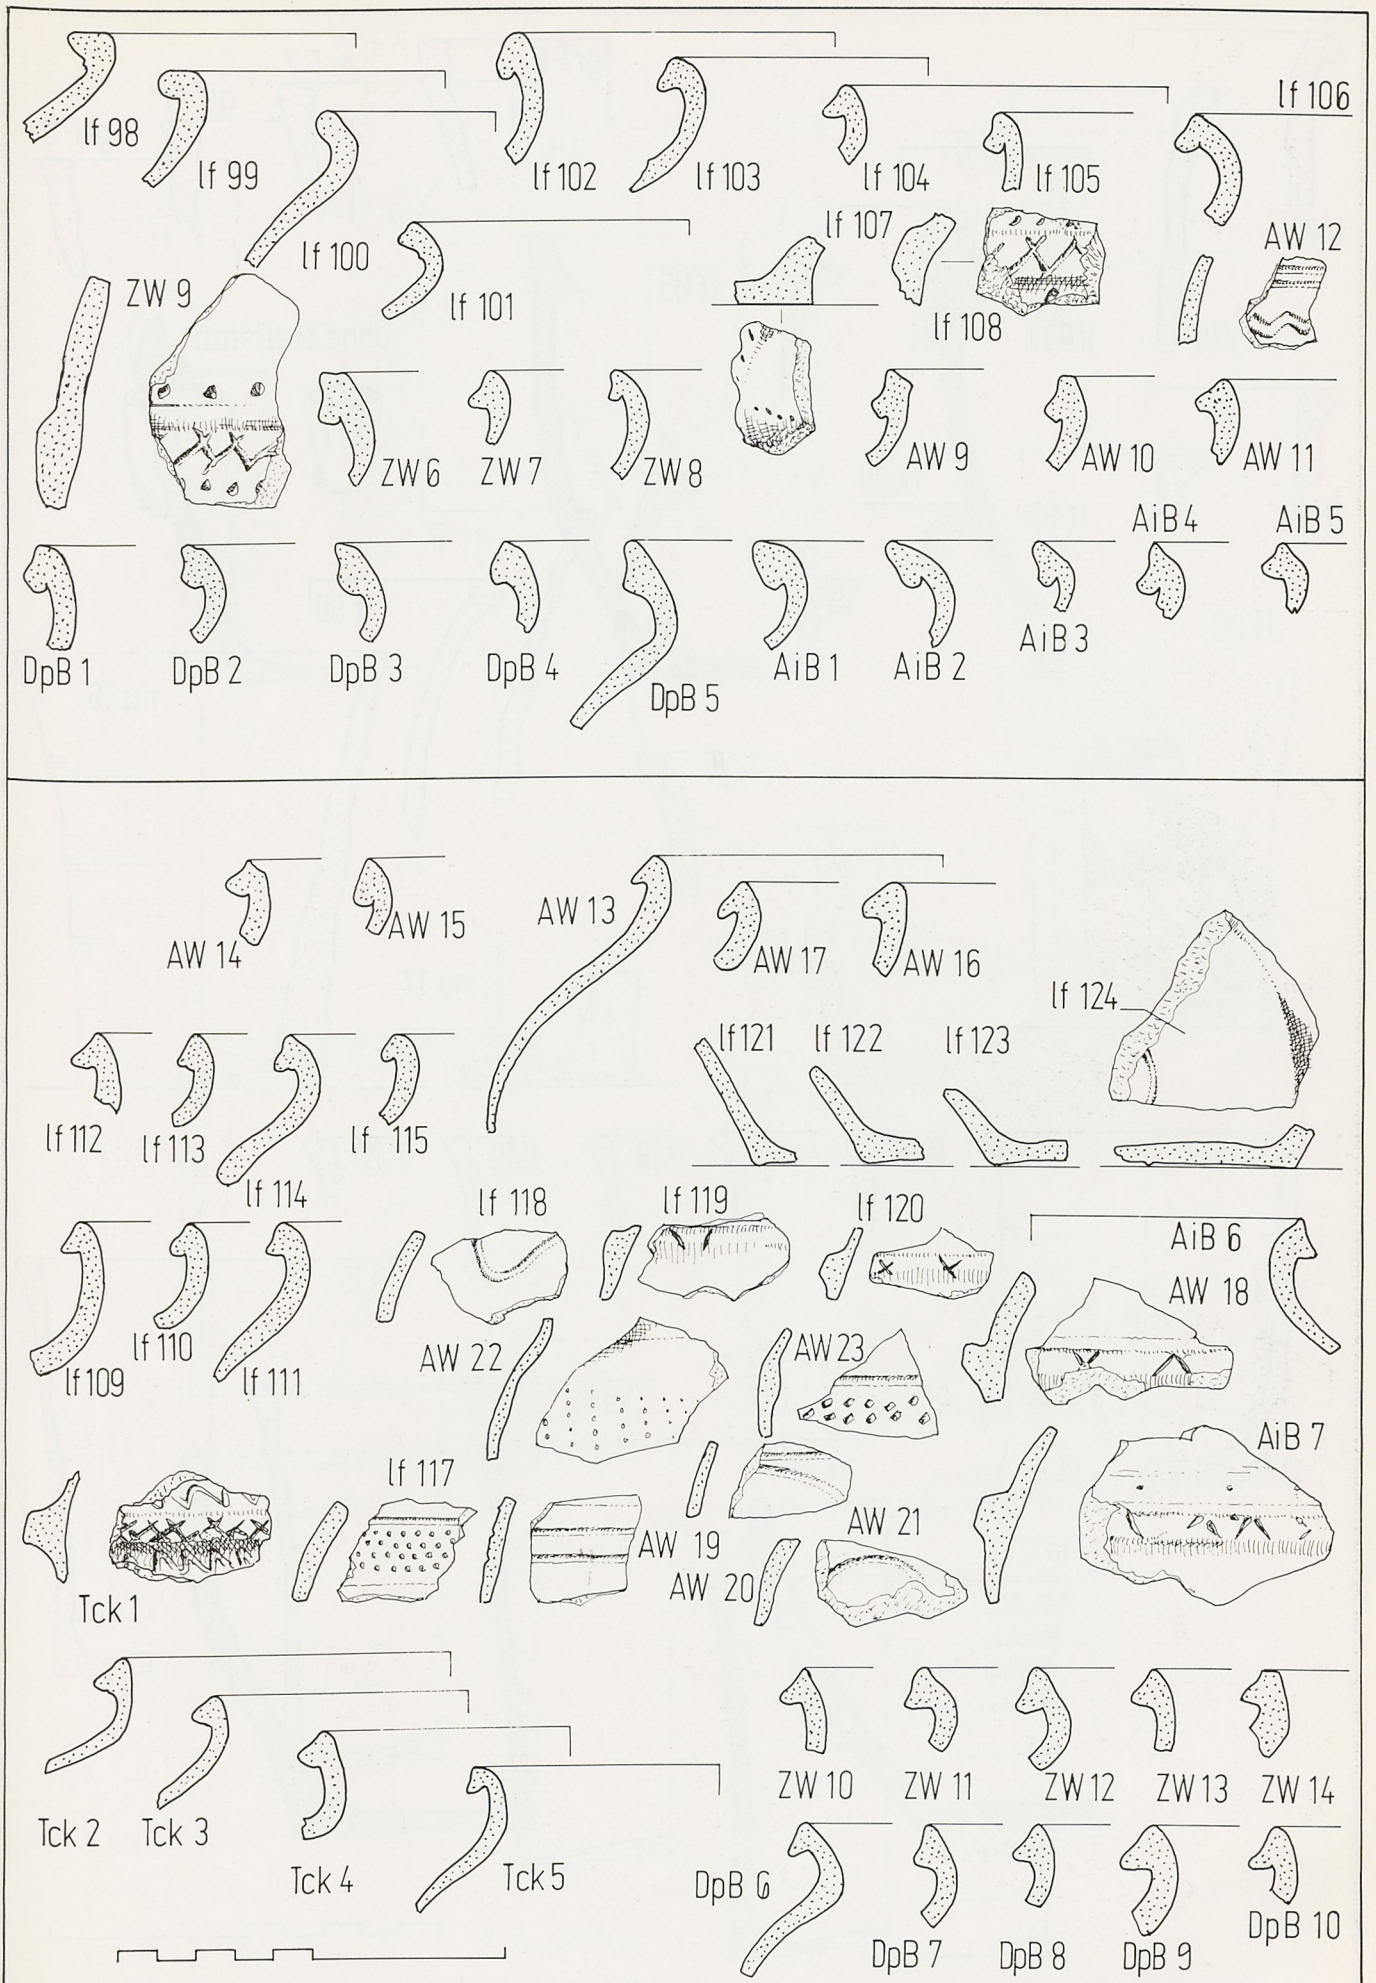 lf 98
lf 99
lf 100
lf 101
lf 102
lf 103
lf 104
lf 105
lf 106
lf 107
lf 108
AW 12
ZW 9
ZW 6
ZW 7
ZW 8
AW 9
AW 10
AW 11
DpB 1
DpB 2
DpB 3
DpB 4
DpB 5
AiB 1
AiB 2
AiB 3
AiB 4
AiB 5
AW 14
AW 15
AW 13
AW 17
AW 16
lf 124
lf 112
lf 113
lf 114
lf 115
lf 121
lf 122
lf 123
lf 109
lf 110
lf 111
lf 118
lf 119
lf 120
AiB 6
AW 18
AW 22
AW 23
AiB 7
Tck 1
lf 117
AW 19
AW 20
AW 21
Tck 2
Tck 3
Tck 4
Tck 5
ZW 10
ZW 11
ZW 12
ZW 13
ZW 14
DpB 6
DpB 7
DpB 8
DpB 9
DpB 10